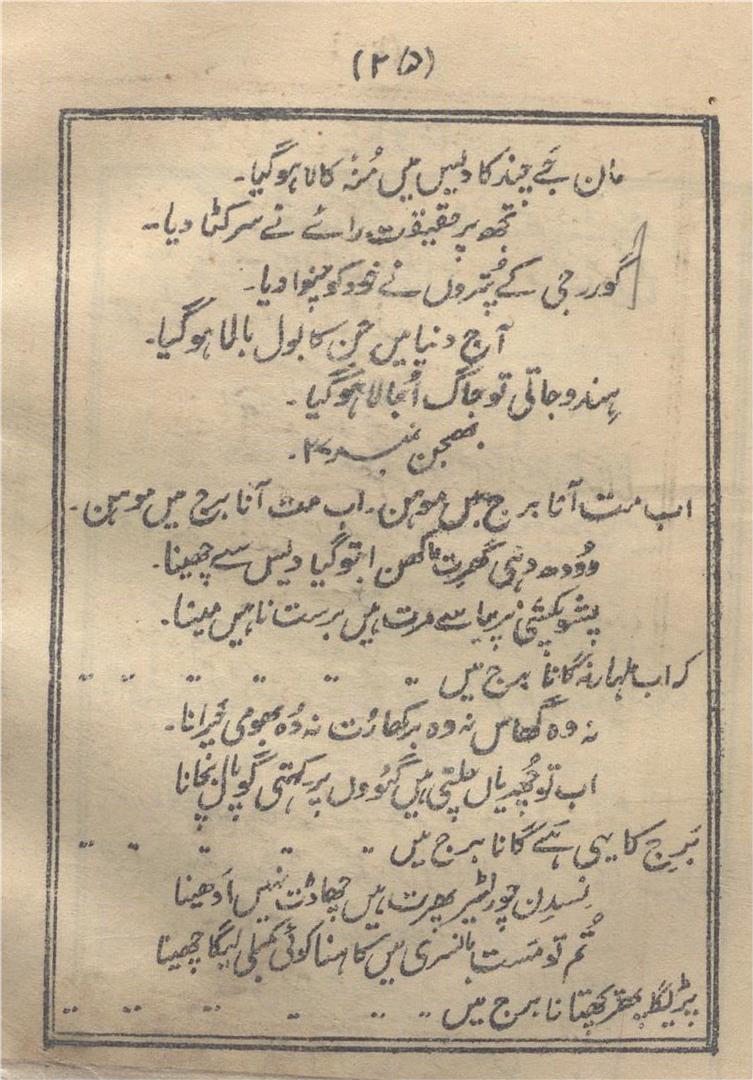 (۲۵)
مان جَے چند کا دیس میں مُنہ کالا ہوگیا۔
تجھ پر حقیقت رائے نے سر کٹا دیا۔۔
گورجی کے پُتروں نے خود کو چنوا دیا۔
آج دنیا میں جن کا بول بالا ہوگیا۔
ہندو جاتی تو جاگ اُجالا ہوگیا۔
بھجن نمبر ۲۷۔
اب مت آنا برج میں موہن۔ اب مت آنا برج میں موہن۔
دُودھ دہی گھرت ماکھن اب تو گیا دیس سے چھینا۔
پشو پکشی پیاسے مرت ہیں برست ناہیں مینا۔
کر اب ملہار نہ گانا برج میں ۔۔ ۔۔ ۔۔ ۔۔ ۔۔ ۔۔
نہ وہ گھاس نہ وہ برکھا رُت نہ وُہ بھومی چَرانا۔
اب تو چُھریاں چلتی ہیں گئووں پر کہتی گوپال بچانا
بَرِج کا یہی ہَے گانا برج میں ۔۔ ۔۔ ۔۔ ۔۔ ۔۔
نِسدِن چور لٹیر پھرت ہیں چھادُت نہیں اَدھینا
تُم تو مَست بانسری میں کاہنا کوئی کمبلی لیگا چھینا
پڑیگا پھر پچھتانا برج میں ۔۔ ۔۔ ۔۔ ۔۔ ۔۔ ۔۔